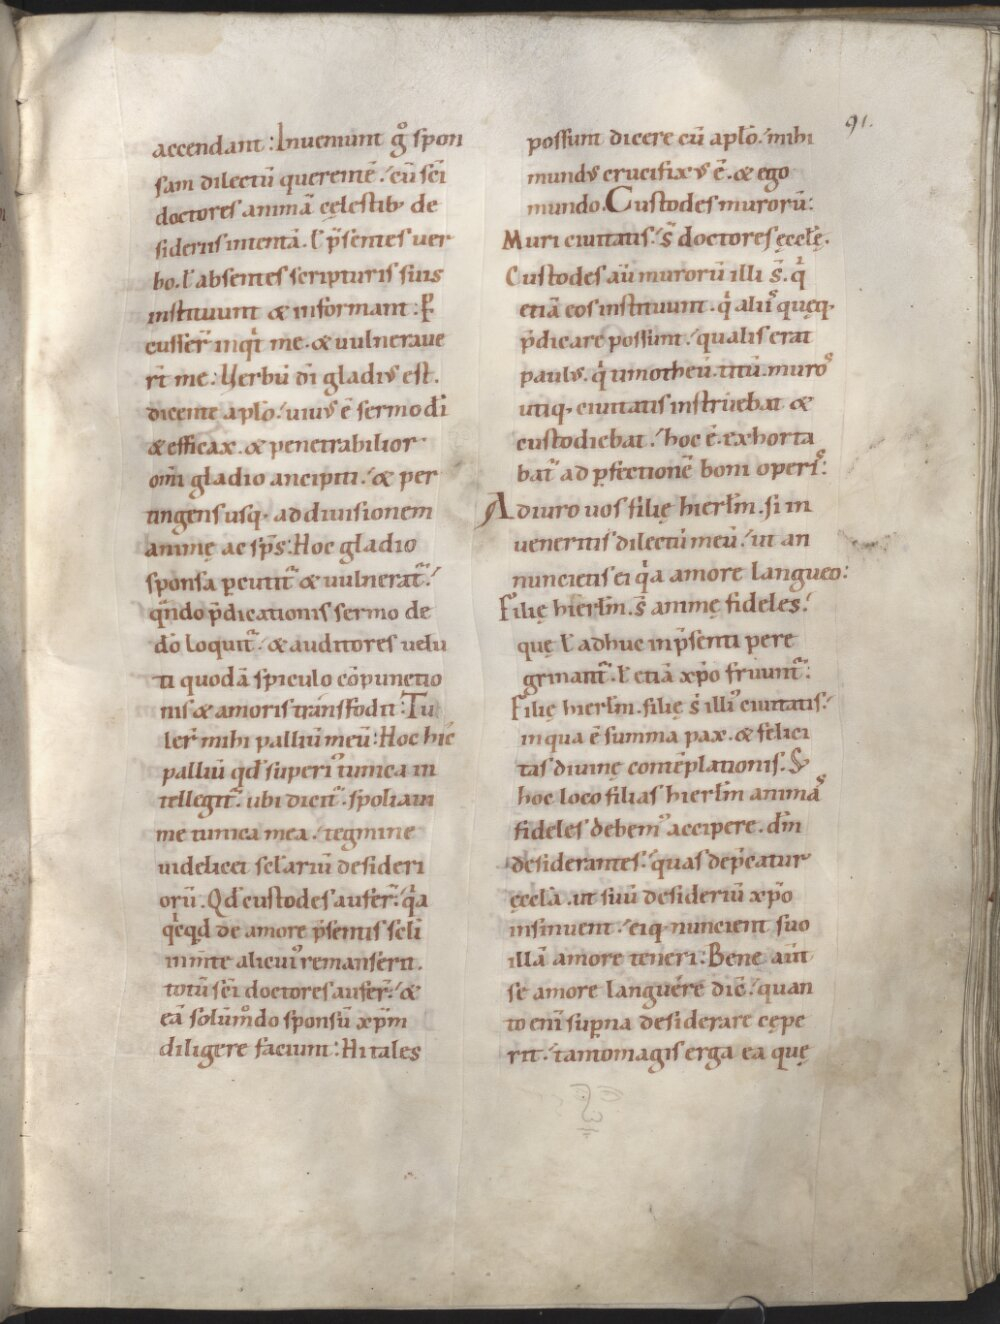 91.
accendant : Inueniunt gͦ spon
sam dilectū querentē .' cū sc̄i
doctores animā cęlestib; de
siderus intentā . ł p̄sentes uer
bo . ł absentes scripturis suis
instituunt & informant : P̱
cusser̄ inqͥt me . & uulneraue
rt̄ me : Verbū dī gladiꝰ est .
dicente apło .' uiuꝰ ē sermo dī
& efficax . & penetrabilior
om̄i gladio ancipiti .' & per
tingens usq; ad diuisionem
animę ac sp̄s : Hoc gladio
sponsa ꝑcutit᷑ & uulnerat᷑ .'
qn̄do p̄dicationis sermo de
dō loquit᷑ .' & auditores uelu
ti quodā spiculo cōpunctio
nis & amoris transfodit : Tu
ler̄ mihi palliū meū : Hoc hic
palliū qd̄ superiꝰ tunica in
tellegit᷑ . ubi dicit᷑ . spoliaui
me tunica mea .' tegmine
uidelicet scłariū desideri
orū . Qd̄ custodes aufer̄ .' qͥa
qͥcqͥd de amore p̄sentis scłi
in m̄te alicuiꝰ remanserit .
totū sc̄i doctores aufer̄ .' &
eā solūm̊do sponsū xp̄m
diligere faciunt : Hi tales
possunt dicere cū apło .' mihi
mundꝰ crucifixꝰ ē . & ego
mundo . Custodes murorū :
Muri ciuitatis .' s̄ doctores ęccłę .
Custodes aū murorū illi s̄ . qͥ
etiā eos instituunt . qͥ aliis quęq;
p̄dicare possunt .' qualis erat
paulꝰ . qͥ timotheū . titū . muros
utiq; ciuitatis instruebat &
custodiebat .' hoc ē . exhorta
bat᷑ ad ꝑfectionē boni operis :
Adiuro uos filię hierłm . si in
ueneritis dilectū meū .' ut an
nuncietis ei qͥa amore langueo :
Filię hierłm . s̄ animę fideles .'
quę ł adhuc in p̄senti pere
grinant᷑ . ł etiā xp̄o fruunt᷑ :
Filię hierłm . filię s̄ illiꝰ ciuitatis .'
in qua ē summa pax . & felici
tas diuinę contēplationis . S;
hoc loco filias hierłm animas
fideles debemꝰ accipere . dn̄m
desiderantes .' quas dep̄catur
ęcclā . ut suū desideriū xp̄o
insinuent .' eiq; nuncient suo
illā amore teneri : Bene aūt
se amore languere dic̄ .' quan
to eni suꝑna desiderare cępe
rit .' tantomagis erga ea quę